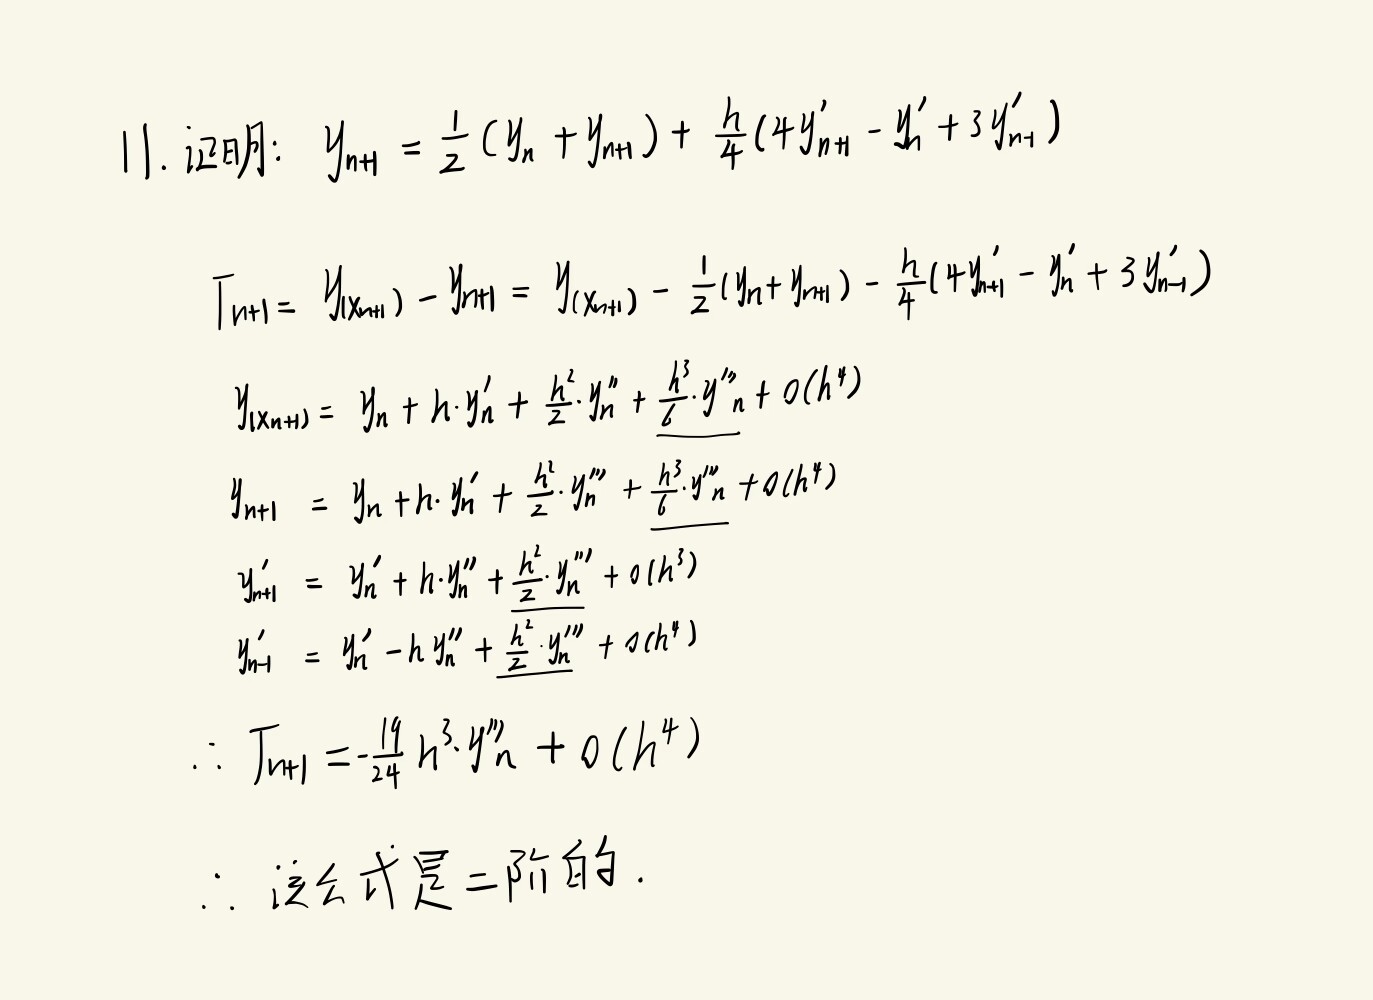 11. 证明: y_{n+1} = \frac{1}{2}(y_n + y_{n+1}) + \frac{h}{4}(4y'_{n+1} - y'_n + 3y'_{n-1})
T_{n+1} = y_{(x_{n+1})} - y_{n+1} = y_{(x_{n+1})} - \frac{1}{2}(y_n + y_{n+1}) - \frac{h}{4}(4y'_{n+1} - y'_n + 3y'_{n-1})
y_{(x_{n+1})} = y_n + h·y'_n + \frac{h^2}{2}·y''_n + \frac{h^3}{6}·y'''_n + o(h^4)
y_{n+1} = y_n + h·y'_n + \frac{h^2}{2}·y'''_n + \frac{h^3}{6}·y'''_n + o(h^4)
y'_{n+1} = y'_n + h·y''_n + \frac{h^2}{2}·y'''_n + o(h^3)
y'_{n-1} = y'_n - hy''_n + \frac{h^2}{2}·y'''_n + o(h^4)
∴ T_{n+1} = -\frac{19}{24}h^3·y'''_n + o(h^4)
∴ 该公式是二阶的.